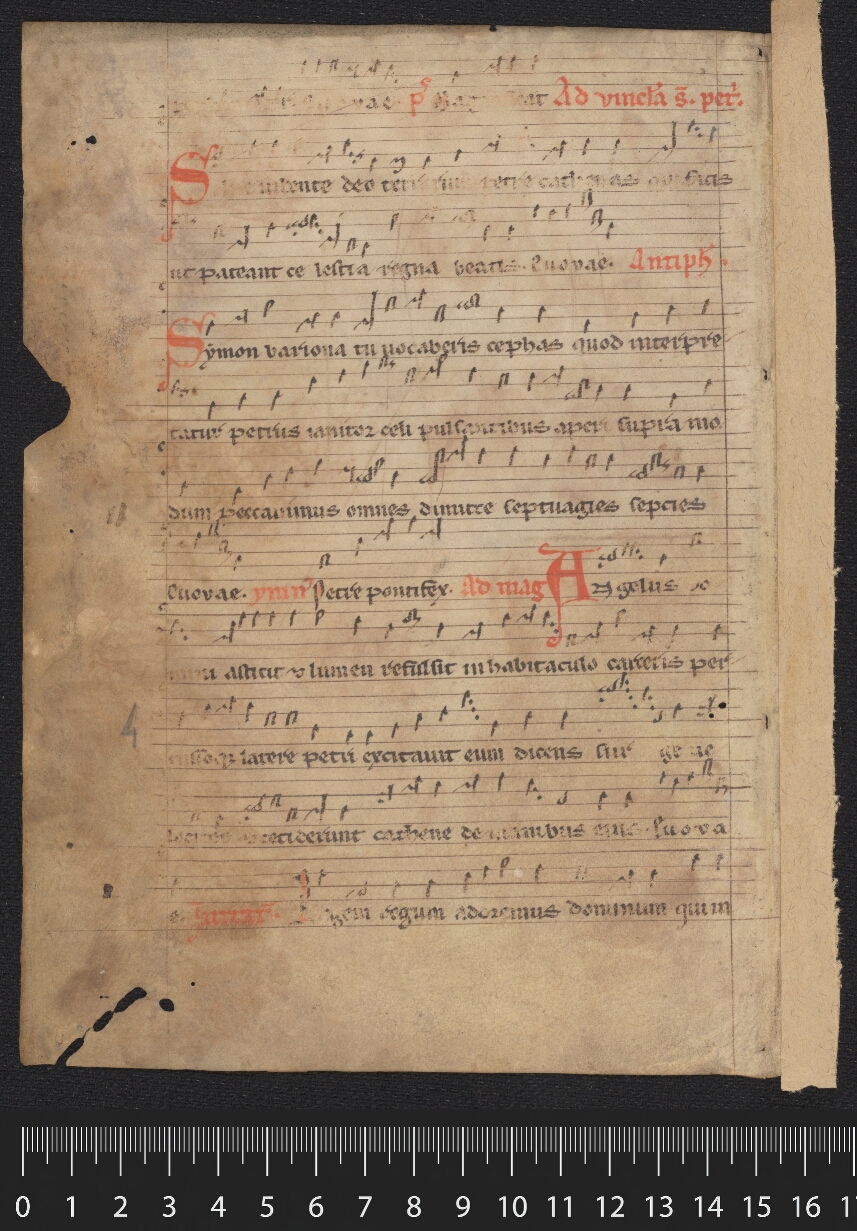 euovae. ps Mag Ad vincla s. petr.
S iubente deo terrarum petre cathenas qui facis
ut pateant ce lestia regna beatis. Euovae. Antiph.
Symon variona tu vocaberis cephas quod interpre
tatur petrus ianitor celi pulsantibus aperi supra mo
dum peccavimus omnes dimitte septuagies septies
Euovae. ymn Petre pontifex. Ad mag Angelus do
mini astitit & lumen refulsit in habitaculo carceris per
cussoq; latere petri excitavit eum dicens sur ge ve
lociter ceciderunt cathene de manibus eius. Euova
e. Invitat. Regem regum adoremus dominum qui in
4
0 1 2 3 4 5 6 7 8 9 10 11 12 13 14 15 16